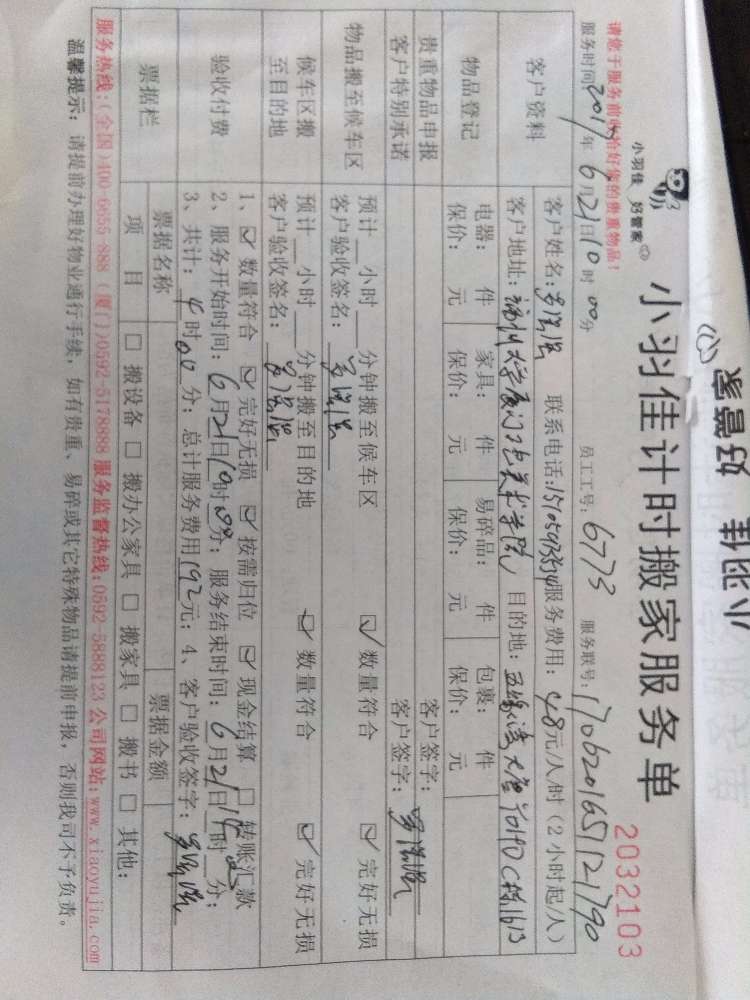 家管好 佳羽小
小羽佳 好管家
小羽佳计时搬家服务单
2032103
请您于服务前收拾好您的贵重物品！
服务时间2017年6月21日10时00分 员工工号：6773 服务联号：170620165121790
客户资料
客户姓名： 联系电话： 服务费用：48元/人/时（2小时起/人）
客户地址：福州大学厦门工艺美术学院 目的地：五缘湾 C栋1613
物品登记
电器： 件 家具： 件 易碎品： 件 包裹： 件
保价： 元 保价： 元 保价： 元 保价： 元
贵重物品申报 客户签字：
客户特别承诺 客户签字：
物品搬至候车区
预计 小时 分钟搬至候车区 ☑数量符合 ☑完好无损
客户验收签名：
候车区搬至目的地
预计 小时 分钟搬至目的地 ☑数量符合 ☑完好无损
客户验收签名：
验收付费
1、☑数量符合 ☑完好无损 ☑按需归位 ☑现金结算 □转账汇款
2、服务开始时间：6月21日10时00分；服务结束时间：6月21日14时00分；
3、共计：4时00分；总计服务费用192元；4、客户验收签字：
票据栏
票据名称 票据金额
项 目 □搬设备 □搬办公家具 □搬家具 □搬书 □其他：
服务热线：(全国)400-6655 888 (厦门)0592-5178888 服务监督热线:0592-5888123 公司网站:www.xiaoyujia.com
温馨提示：请提前办理好物业通行手续，如有贵重、易碎或其它特殊物品请提前申报，否则我司不予负责。